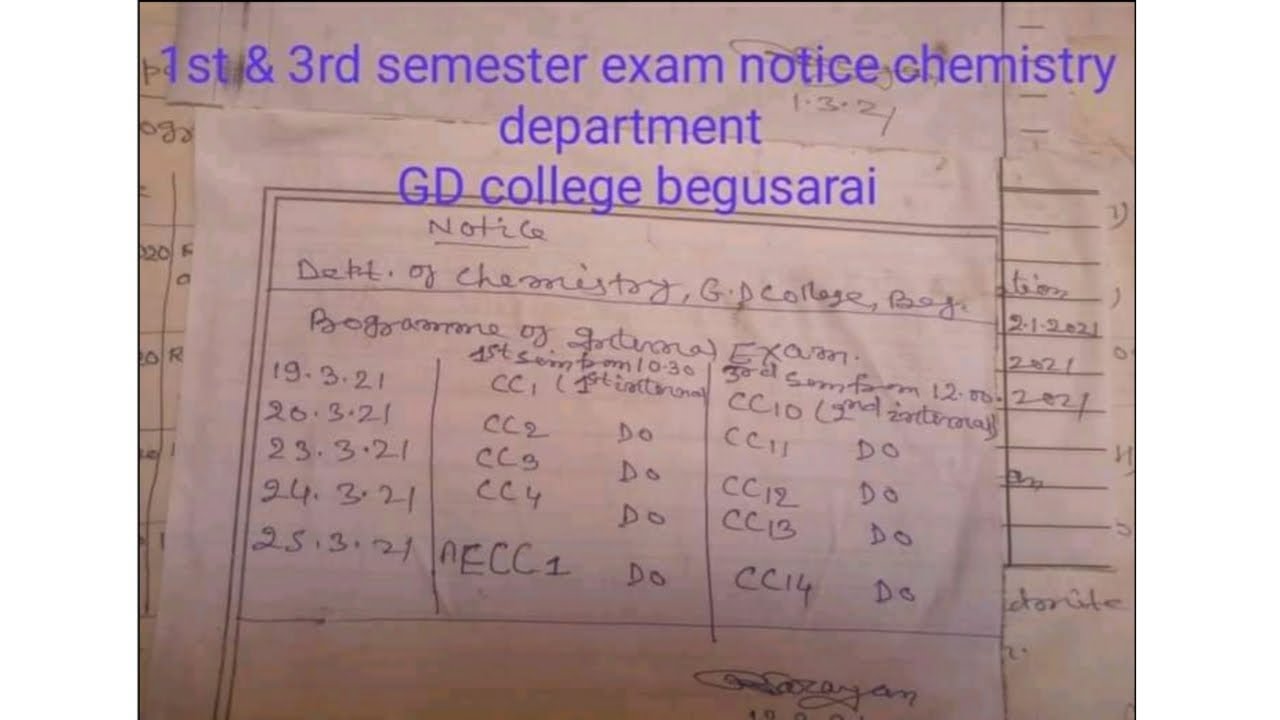 1st & 3rd semester exam notice chemistry
department
GD college begusarai
1.3.21
Notice
Dept. of chemistry, G.D College, Beg.
Programme of Internal Exam.
1st Sem from 10.30 3rd Sem from 12.00
19.3.21 CC1 (1st internal) CC10 (2nd internal)
20.3.21 CC2 DO CC11 DO
23.3.21 CC3 DO CC12 DO
24.3.21 CC4 DO CC13 DO
25.3.21 AECC1 DO CC14 DO
ogr
020 R
20 R
tion
2.1.2021
2021
2021